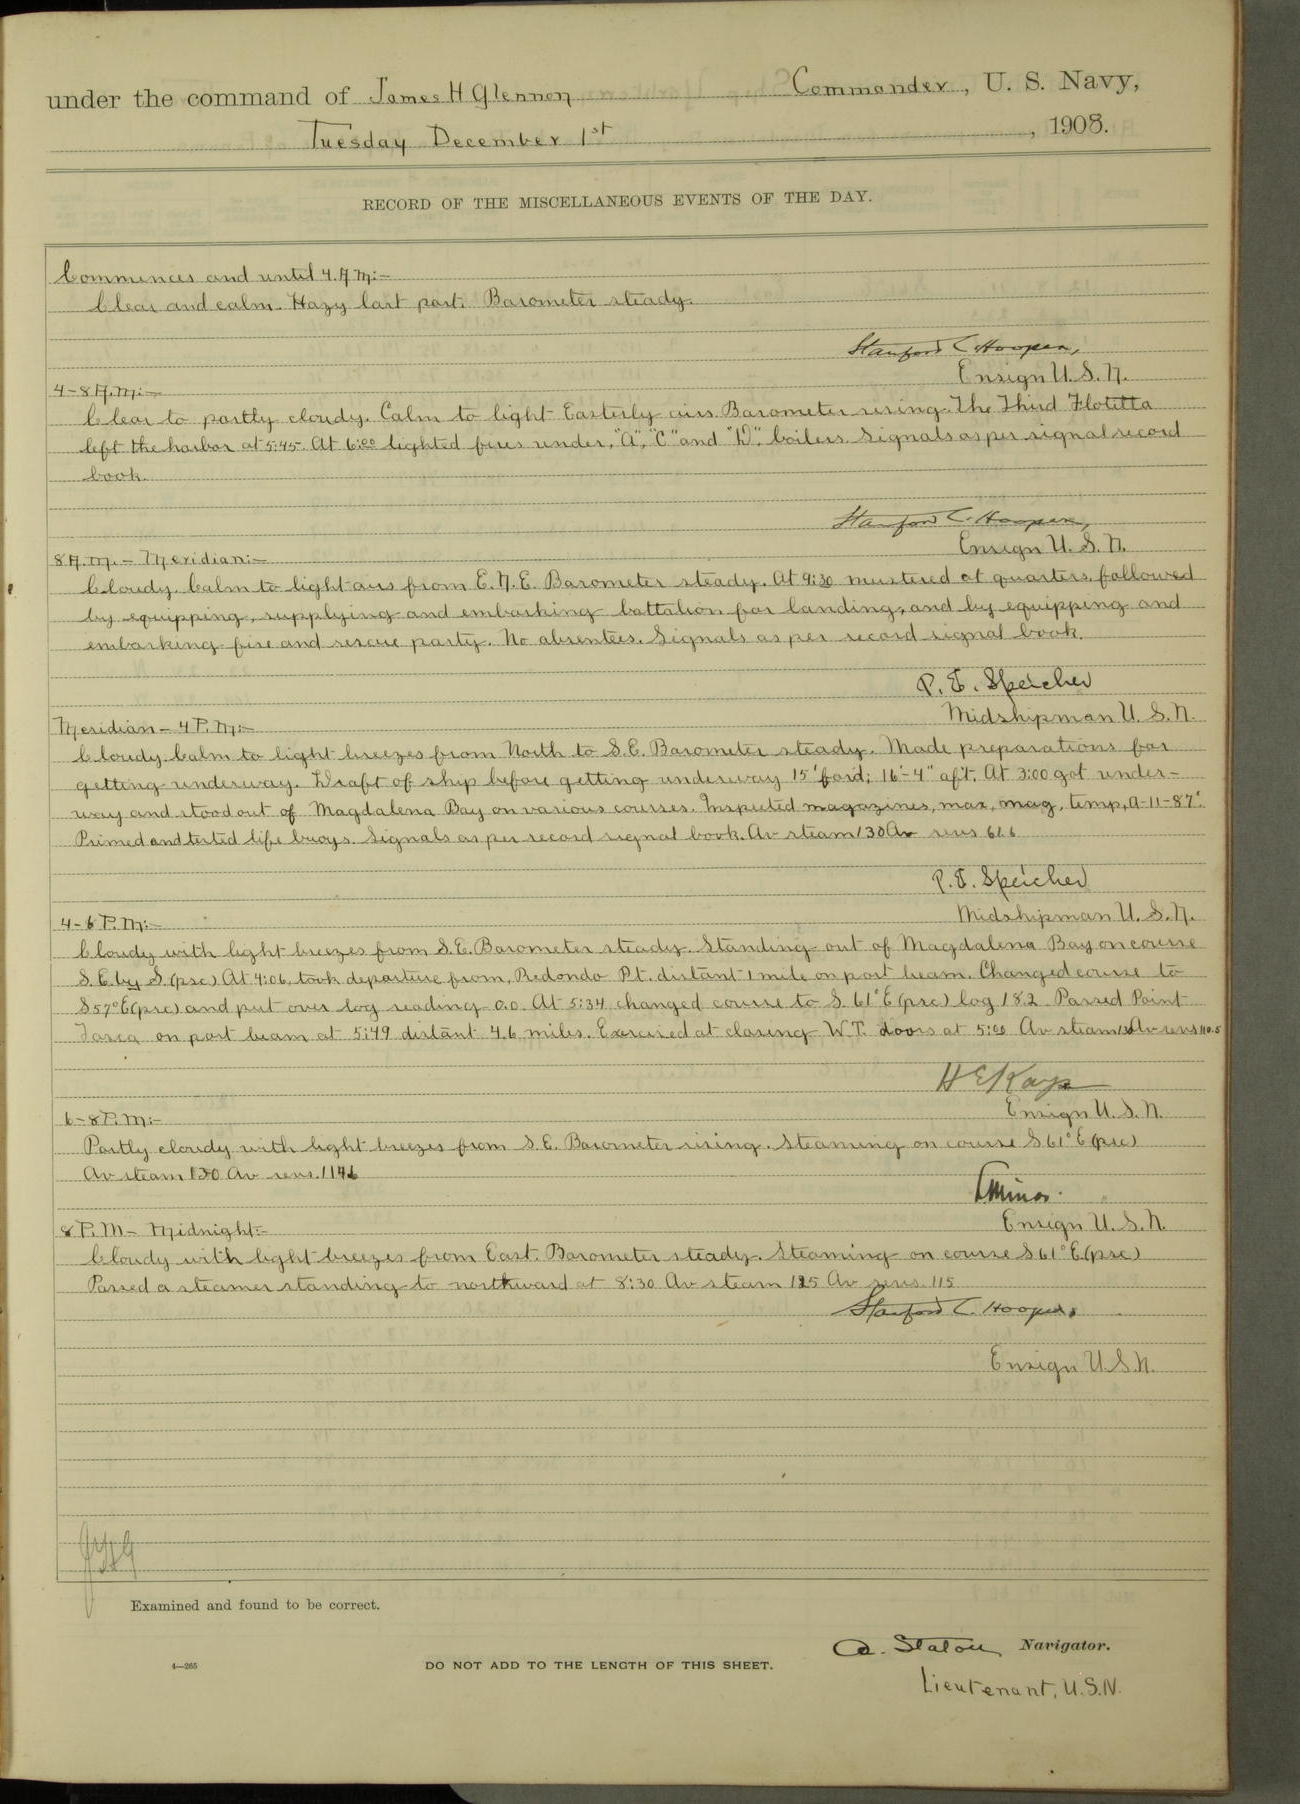 under the command of James H Glennon Commander, U. S. Navy,
Tuesday December 1st, 1908.
RECORD OF THE MISCELLANEOUS EVENTS OF THE DAY.
Commences and until 4. A. M:-
Clear and calm. Hazy last part. Barometer steady.
Stanford C. Hooper,
Ensign U. S. N.
4-8 A. M:-
Clear to partly cloudy. Calm to light Easterly airs. Barometer rising. The Third Flotilla
left the harbor at 5:45. At 6:00 lighted fires under, "A", "C" and "D", boilers. Signals as per signal record
book.
Stanford C. Hooper,
Ensign U. S. N.
8 A. M. - Meridian:-
Cloudy. Calm to light airs from E. N. E. Barometer steady. At 9:30 mustered at quarters, followed
by equipping, supplying and embarking battalion for landing, and by equipping and
embarking fire and rescue party. No absentees. Signals as per record signal book.
P. E. Speicher
Midshipman U. S. N.
Meridian - 4 P. M:-
Cloudy. Calm to light breezes from North to S. E. Barometer steady. Made preparations for
getting underway. Draft of ship before getting underway 15' for'd; 16'-4" aft. At 3:00 got under-
way and stood out of Magdalena Bay on various courses. Inspected magazines, max, mag, temp, A-11-87°.
Primed and tested life buoys. Signals as per record signal book. Av steam 130 Av revs 61.6
P. E. Speicher
Midshipman U. S. N.
4-6 P. M:-
Cloudy with light breezes from S. E. Barometer steady. Standing out of Magdalena Bay on course
S. E. by S. (psc) At 4:06, took departure from, Redondo Pt. distant 1 mile on port beam. Changed course to
S 57° E (psc) and put over log reading 0.0. At 5:34 changed course to S. 61° E (psc) log 18.2. Passed Point
Tosca on port beam at 5:49 distant 4.6 miles. Exercised at closing W. T. doors at 5:00 Av steam 130 Av revs 110.5
H E Kays
Ensign U. S. N.
6-8 P. M:-
Partly cloudy with light breezes from S. E. Barometer rising. Steaming on course S 61° E (psc)
Av steam 130 Av revs. 114.6
Minor.
Ensign U. S. N.
8 P. M - Midnight:-
Cloudy with light breezes from East. Barometer steady. Steaming on course S 61° E. (psc)
Passed a steamer standing to northward at 8:30 Av steam 125 Av revs. 115
Stanford C. Hooper,
Ensign U. S. N.
JHG
Examined and found to be correct.
A. Staton Navigator.
4—265
DO NOT ADD TO THE LENGTH OF THIS SHEET.
Lieutenant, U.S.N.